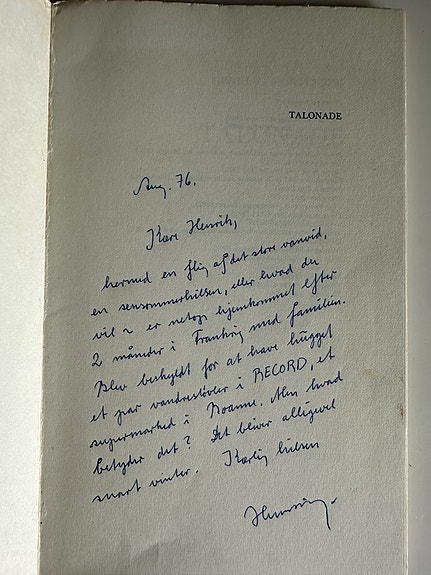 TALONADE
Aug. 76.
Kære Henrik,
hermed en flig af det store vanvid,
en sensommerhilsen, eller hvad du
vil ~ er netop hjemkommet efter
2 måneder i Frankrig med familien.
Blev beskyldt for at have hugget
et par vandrestøvler i RECORD, et
supermarked i Roanne. Men hvad
betyder det? Det bliver alligevel
snart vinter. Kærlig hilsen